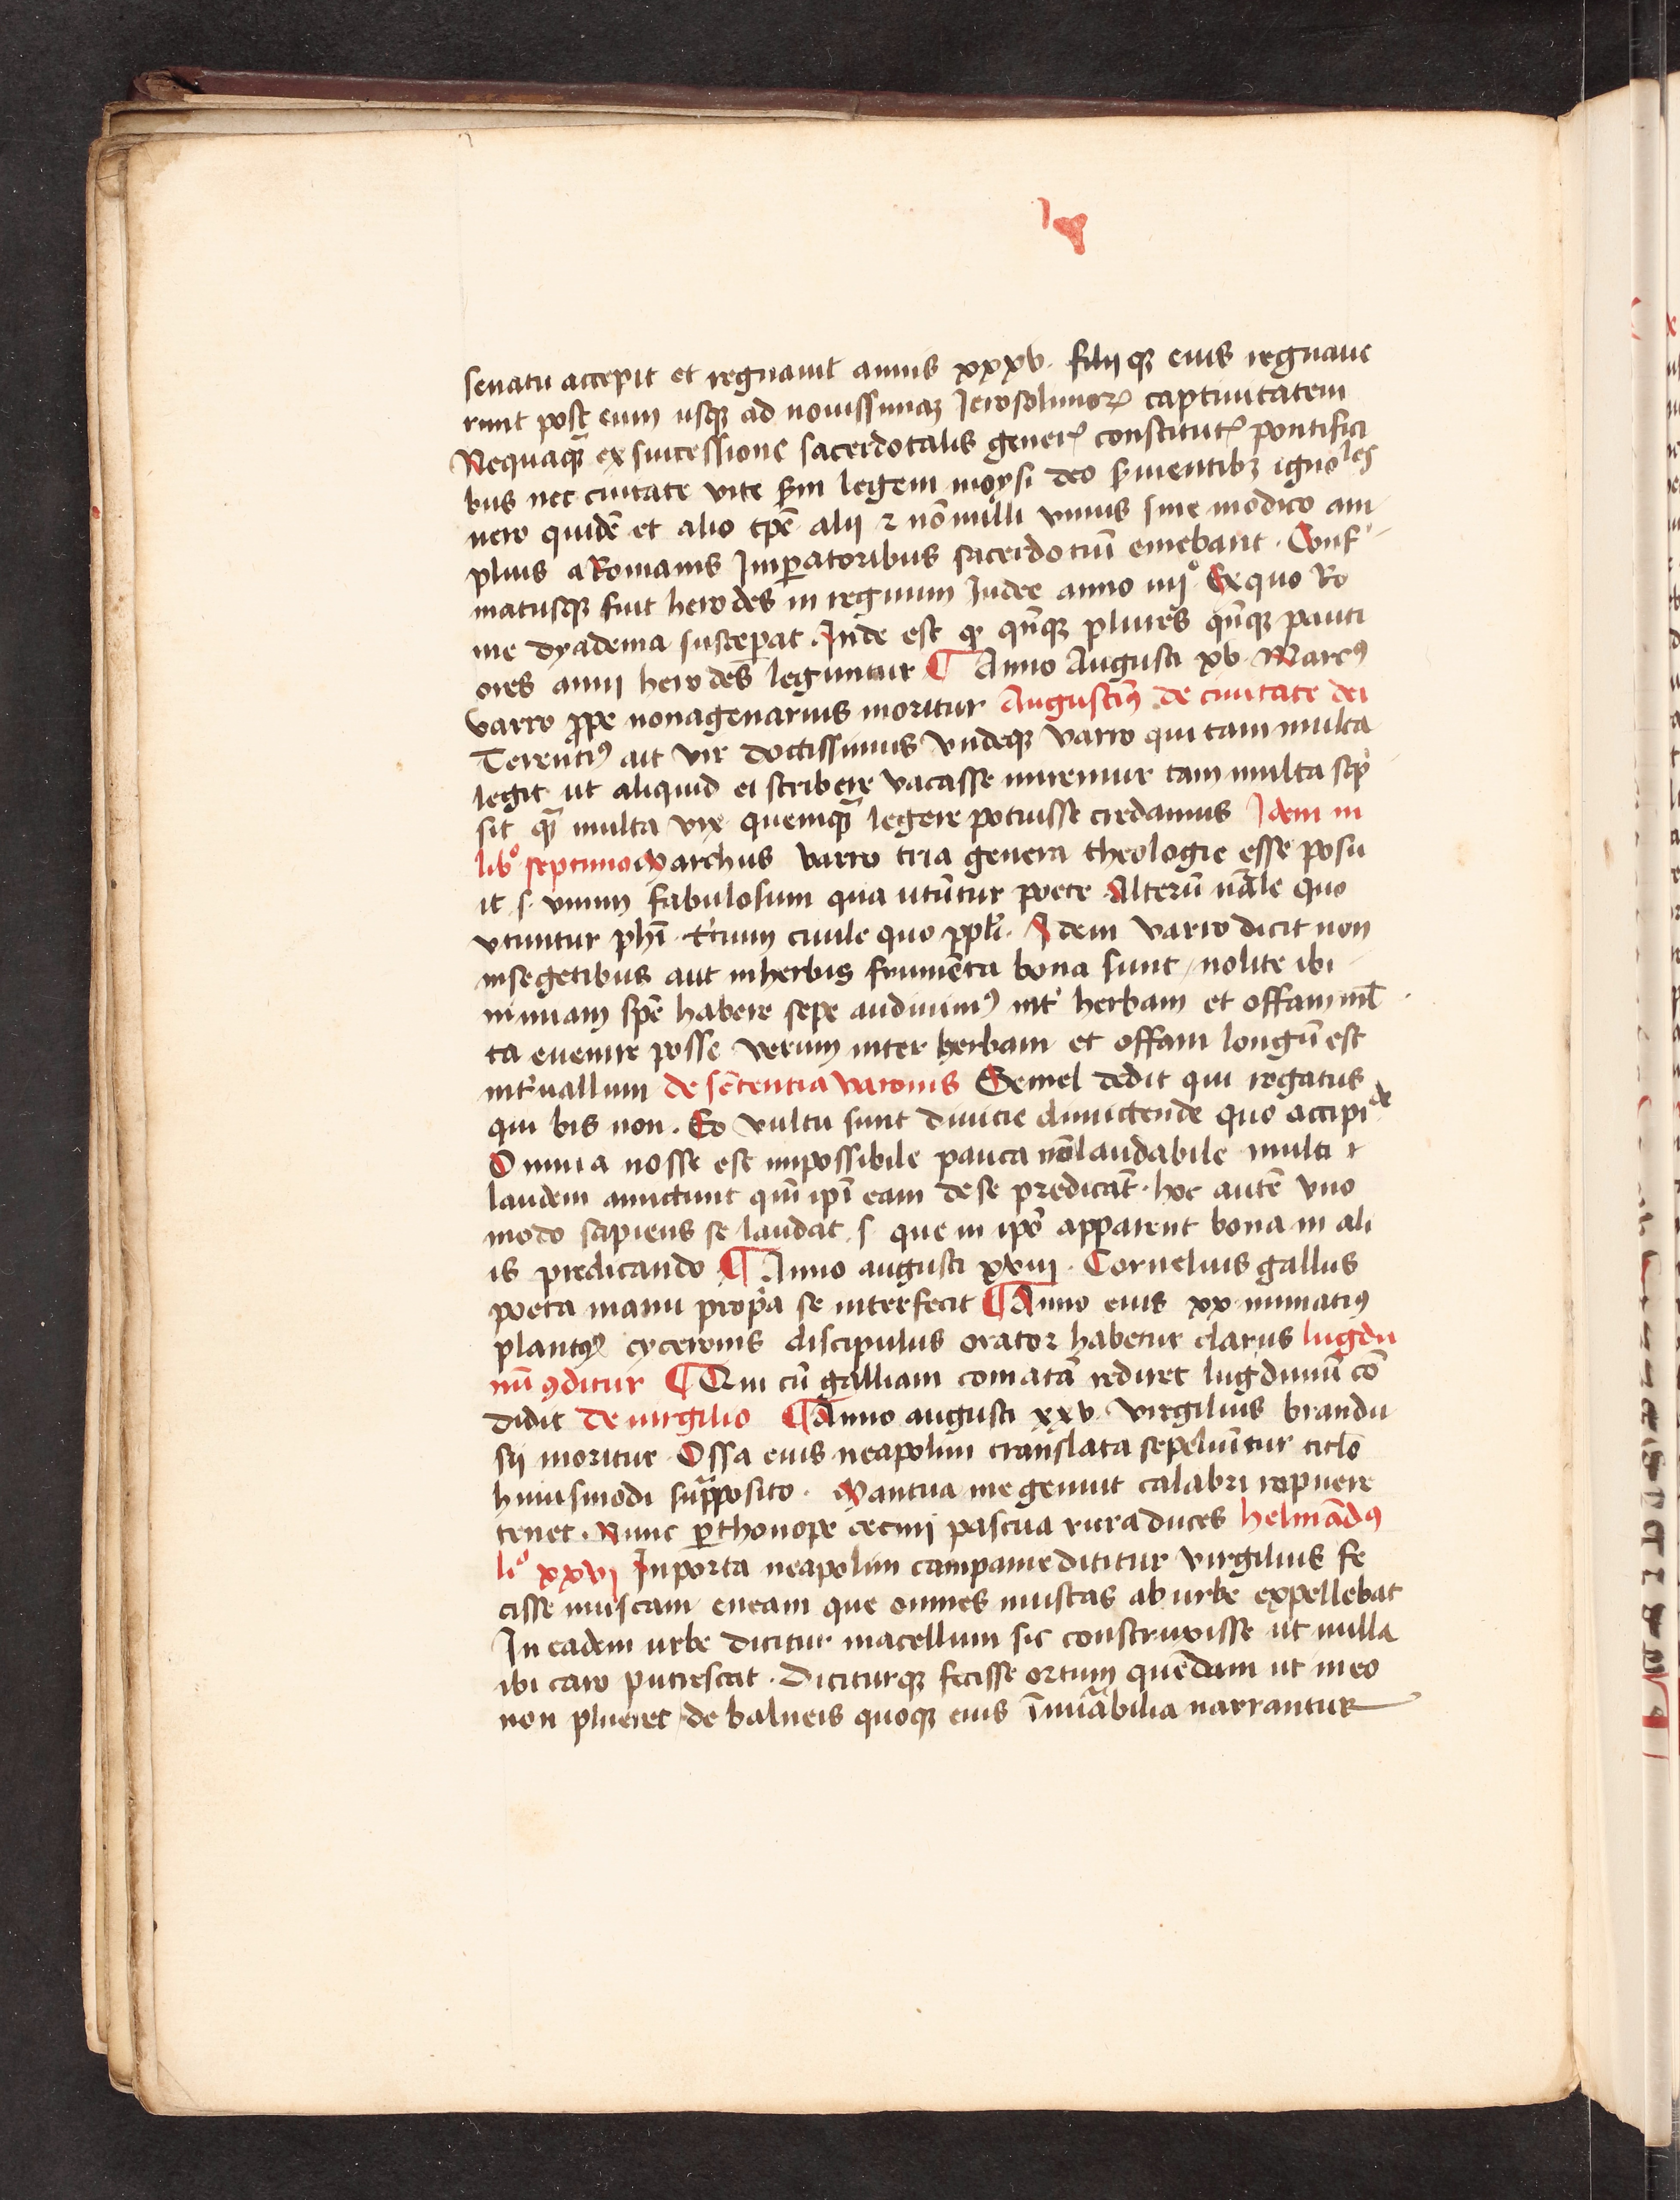 senatu accepit et regnauit annis xxxv. filijqꝫ eius regnaue
runt post eum usqꝫ ad nouissimaꝫ Jerosolimoꝝ captiuitatem
Nequaqꝫ ex successione sacerdotalis generꝭ constitutꝭ pontifici
bus nec ciuitate vite scd̄m legem moysi deo seruientibꝫ igno les
nero quidē et alio tp̄e alij ⁊ nōnulli vnius sine modico am
plius a Romanis Imꝑatoribus sacerdotiū emebant. Conf
matusqꝫ fuit herodes in regnum Iudee anno iiijº Ex quo Ro
me dyadema susceperat. Inde est qꝫ qn̄qꝫ plures qn̄qꝫ pauci
ores anni herodes leguntur ¶ Anno Augusti xv. Marcꝰ
varro ꝓpe nonagenarius moritur Augustinꝰ de ciuitate dei
Terentiꝰ ait vir doctissimus vndeqꝫ varro qui tam multa
legit ut aliquid ei scribere vacasse miremur tam multa scp̄
sit qm̄ multa vix quemqꝫ legere potuisse credamus Idem in
libº septimo Marchus varro tria genera theologie esse posu
it .s. vnum fabulosum qua utūtur poete Alterū nāle quo
vtuntur phī. t'cium ciuile quo ppl̄i. Idem varro dicit non
in segetibus aut in herbis frumēta bona sunt, nolite ibi
nimiam spē habere sepe audiuimꝰ int' herbam et offam ml̄
ta euenire posse verum inter herbam et offam longū est
int'uallum de sētentia varonis Semel dedit qui rogatus
qui bis non. Eo vultu sunt diuicie dimittende quo accipi de
Omnia nosse est impossibile pauca nō laudabile multi ⁊
laudem amittunt qm̄ ip̄i eam de se predicāt. hoc autē vno
modo sapiens se laudat .s. que in ip̄o apparent bona in ali
is predicando ¶ Anno augusti xviij. Cornelius gallus
poeta manu propa se interfecit ¶ Anno eius xx. numatiꝰ
plantꝰ cyceronis discipulus orator habetur clarus lugdu
nū ꝯditur ¶ Qui cū galliam comatā rediret lugdunū cō
didit de uirgilio ¶ Anno augusti xxv. virgilius brandu
sij moritur Ossa eius neapolim translata sepeliūtur titlo
huiusmodi sup̄posito. Mantua me genuit calabri rapuere
tenet. Nunc ꝑthonope cecini pascua rura duces helinādꝰ
liº xxvj In porta neapolim campanie dicitur virgilius fe
cisse muscam eneam que omnes muscas ab urbe expellebat
In eadem urbe dicitur macellum sic construxisse ut nulla
ibi caro putrescat. Diciturqꝫ fecisse ortum quēdam ut in eo
non plueret de balneis quoqꝫ eius īnuābilia narrantur